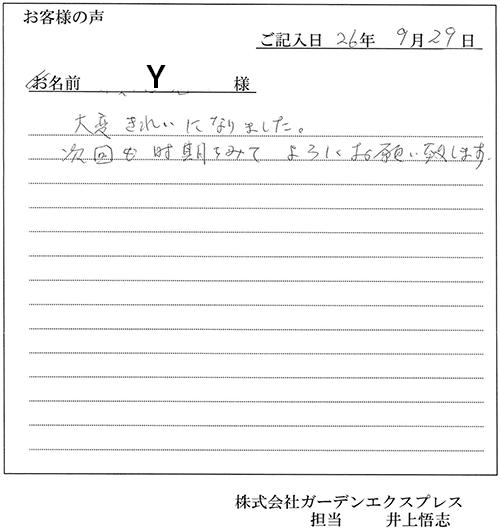 お客様の声
ご記入日 26年 9月29日
お名前 Y 様
大変きれいになりました。
次回も時期をみて よろしくお願い致します。
株式会社ガーデンエクスプレス
担当 井上悟志